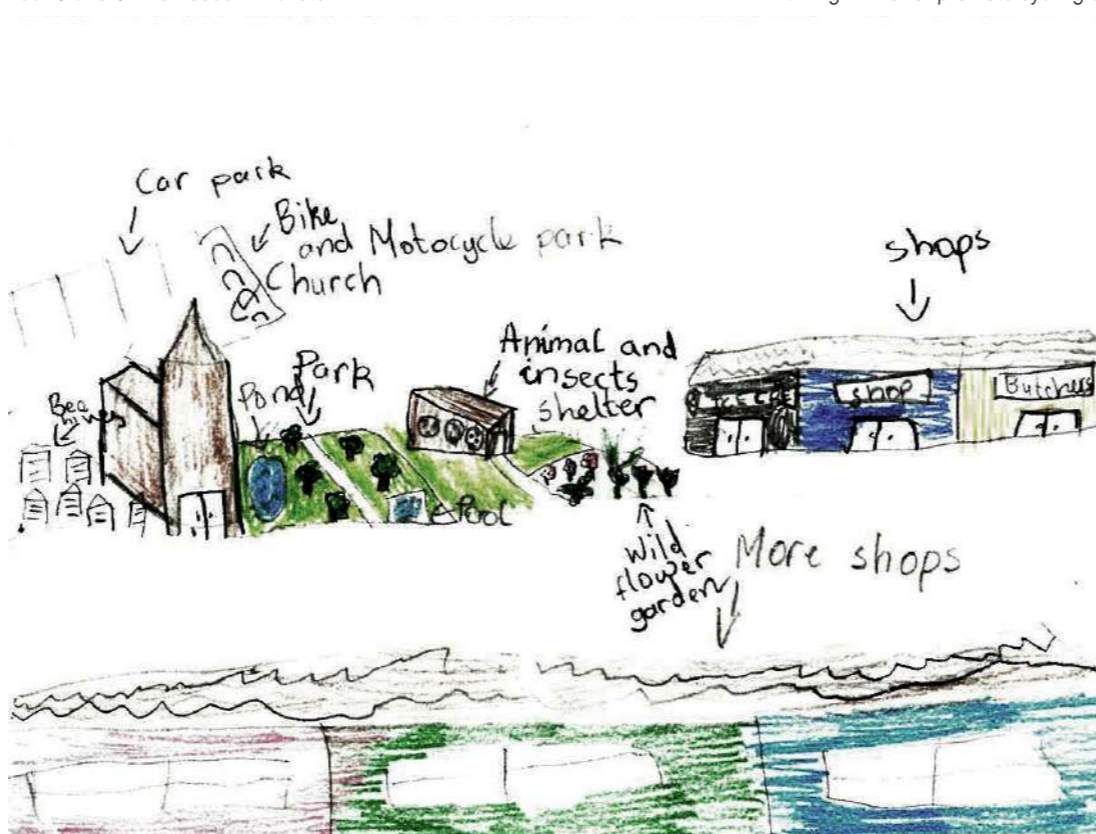 Car park
Bike
and Motocycle park
Church
shops
Park
Pond
Animal and
insects
shelter
Bee
hives
shop
Butchers
Pool
Wild
flower
garden
More shops